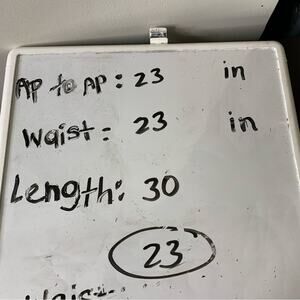 Ap to Ap: 23 in
Waist: 23 in
Length: 30
23